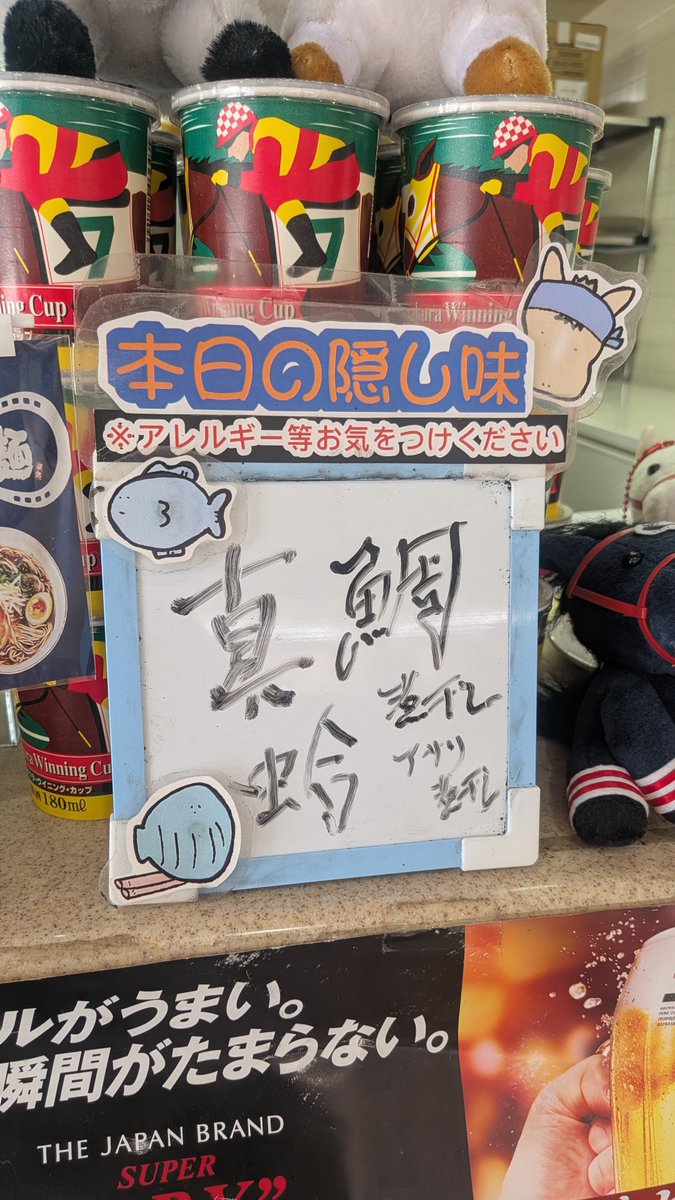 Winning Cup
kura Winning
本日の隠し味
※アレルギー等お気をつけください
真鯛
煮干し
蛤
イワシ
煮干し
ra Winning Cup
ウイニング・カップ
180ml
ルがうまい。
瞬間がたまらない。
THE JAPAN BRAND
SUPER